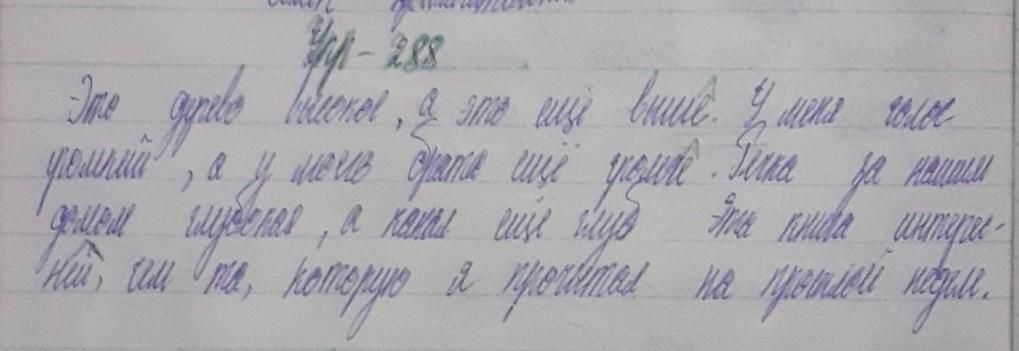 Упр - 288
Это дерево высокое, а это ещё выше. У меня голос
громкий, а у моего брата ещё громче. Речка за нашим
домом глубокая, а канал ещё глуб Эта книга интерес-
ней, чем та, которую я прочитал на прошлой неделе.